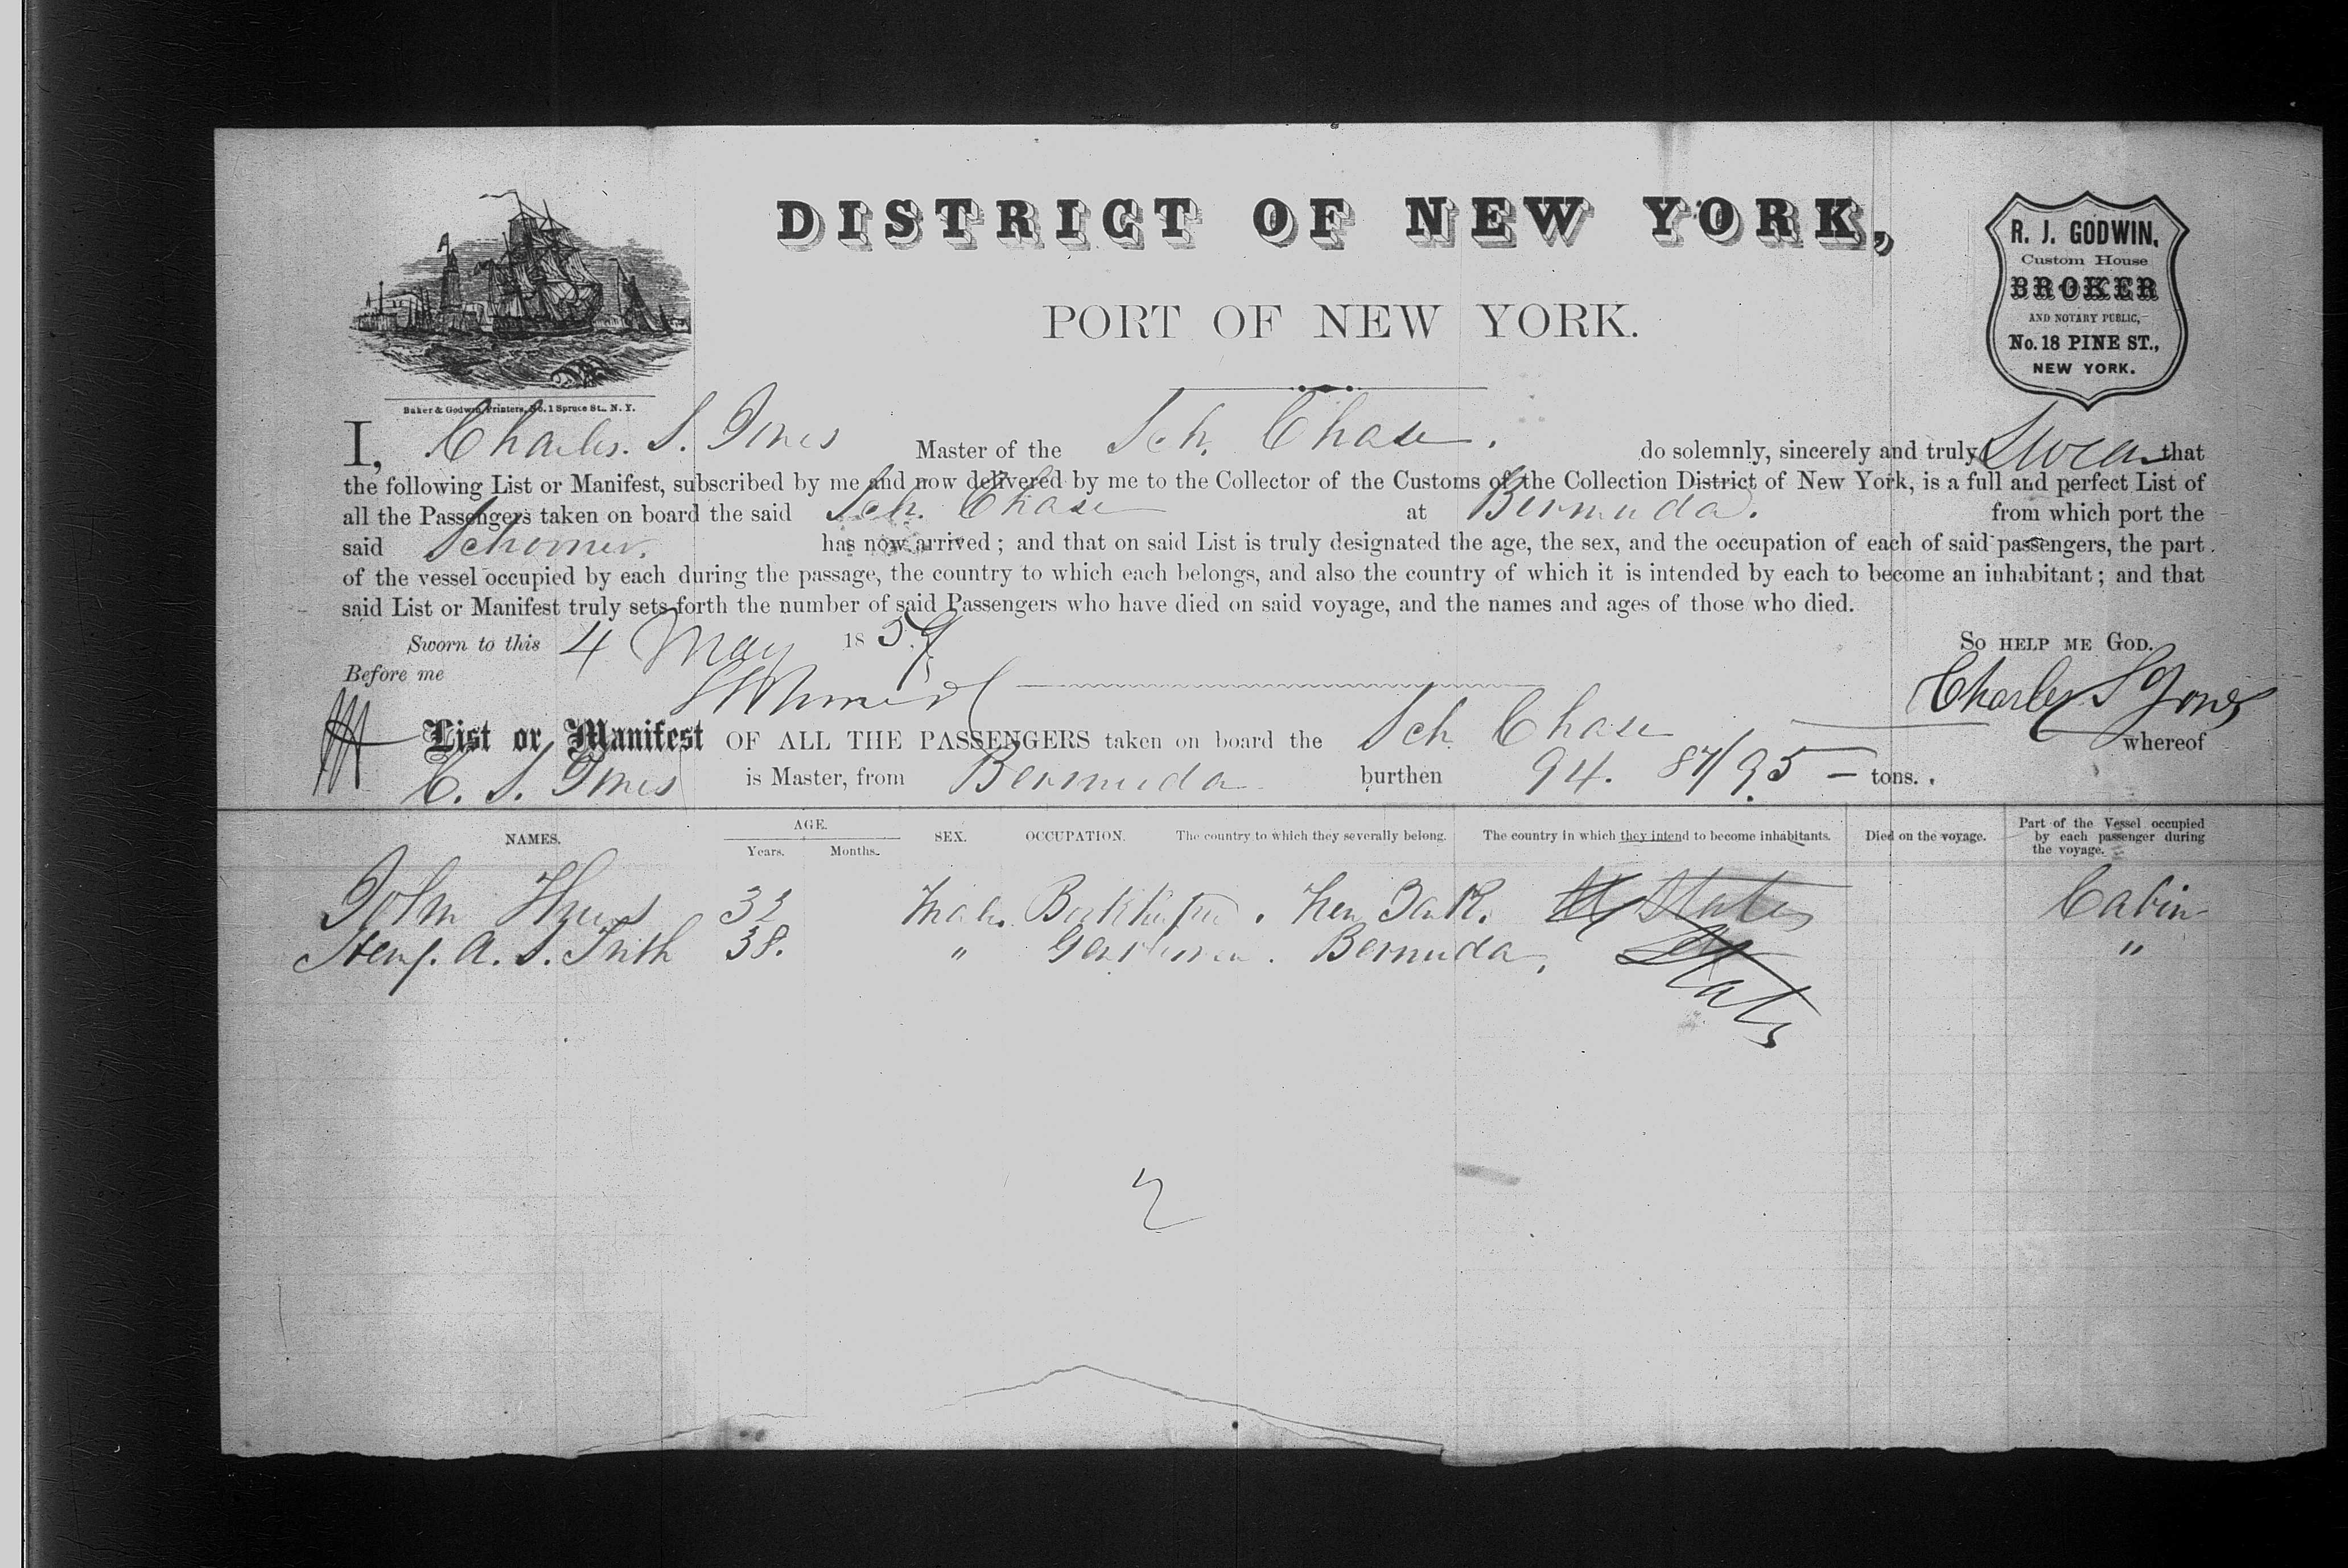 DISTRICT OF NEW YORK,
PORT OF NEW YORK.
R. J. GODWIN,
Custom House
BROKER
AND NOTARY PUBLIC,
No. 18 PINE ST.,
NEW YORK.
Baker & Godwin, Printers, No. 1 Spruce St., N. Y.
I, Charles. S. Jones Master of the Sch. Chase. do solemnly, sincerely and truly Swear that
the following List or Manifest, subscribed by me and now delivered by me to the Collector of the Customs of the Collection District of New York, is a full and perfect List of
all the Passengers taken on board the said Sch. Chase at Bermuda. from which port the
said Schooner. has now arrived; and that on said List is truly designated the age, the sex, and the occupation of each of said passengers, the part
of the vessel occupied by each during the passage, the country to which each belongs, and also the country of which it is intended by each to become an inhabitant; and that
said List or Manifest truly sets forth the number of said Passengers who have died on said voyage, and the names and ages of those who died.
Sworn to this 4 May 1859 So help me God.
Before me Charles S Jones
List or Manifest OF ALL THE PASSENGERS taken on board the Sch Chase whereof
C. S. Jones is Master, from Bermuda burthen 94. 87/95 tons.
NAMES. AGE. Years. Months. SEX. OCCUPATION. The country to which they severally belong. The country in which they intend to become inhabitants. Died on the voyage. Part of the Vessel occupied by each passenger during the voyage.
John 32 Male. New York. States Cabin
A. S. Frith 38. " Gentleman. Bermuda, States "
2